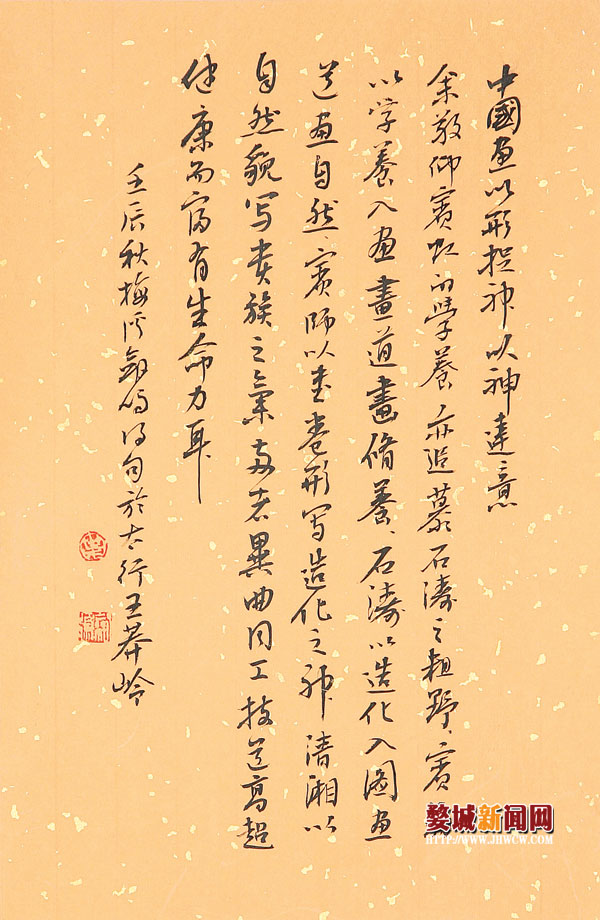 中國畫以形捉神以神達意
余敬仰賓虹的學養、亦追慕石濤之粗野、賓
以学養入画畫道畫脩養、石濤以造化入图画
道画自然、賓師以書卷形写造化之神清湘以
自然貌写貴族之氣両者異曲同工技道高超
健康而富有生命力耳
壬辰秋梅溪得句於太行王莽岭
婺城新闻网
HTTP://WWW.JHWCW.COM